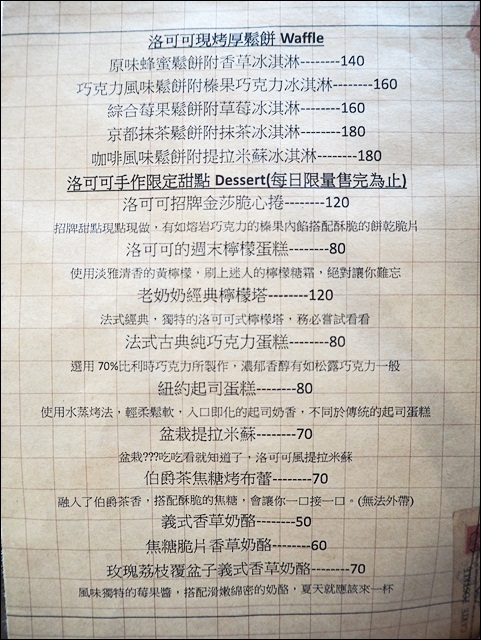 洛可可現烤厚鬆餅 Waffle
原味蜂蜜鬆餅附香草冰淇淋--------140
巧克力風味鬆餅附榛果巧克力冰淇淋--------160
綜合莓果鬆餅附草莓冰淇淋--------160
京都抹茶鬆餅附抹茶冰淇淋--------180
咖啡風味鬆餅附提拉米蘇冰淇淋--------180
洛可可手作限定甜點 Dessert(每日限量售完為止)
洛可可招牌金莎脆心捲--------120
招牌甜點現點現做，有如熔岩巧克力的榛果內餡搭配酥脆的餅乾脆片
洛可可的週末檸檬蛋糕--------80
使用淡雅清香的黃檸檬，刷上迷人的檸檬糖霜，絕對讓你難忘
老奶奶經典檸檬塔--------120
法式經典，獨特的洛可可式檸檬塔，務必嘗試看看
法式古典純巧克力蛋糕--------80
選用 70%比利時巧克力所製作，濃郁香醇有如松露巧克力一般
紐約起司蛋糕--------80
使用水蒸烤法，輕柔鬆軟，入口即化的起司奶香，不同於傳統的起司蛋糕
盆栽提拉米蘇--------70
盆栽???吃吃看就知道了，洛可可風提拉米蘇
伯爵茶焦糖烤布蕾--------70
融入了伯爵茶香，搭配酥脆的焦糖，會讓你一口接一口。(無法外帶)
義式香草奶酪--------50
焦糖脆片香草奶酪--------60
玫瑰荔枝覆盆子義式香草奶酪--------70
風味獨特的莓果醬，搭配滑嫩綿密的奶酪，夏天就應該來一杯